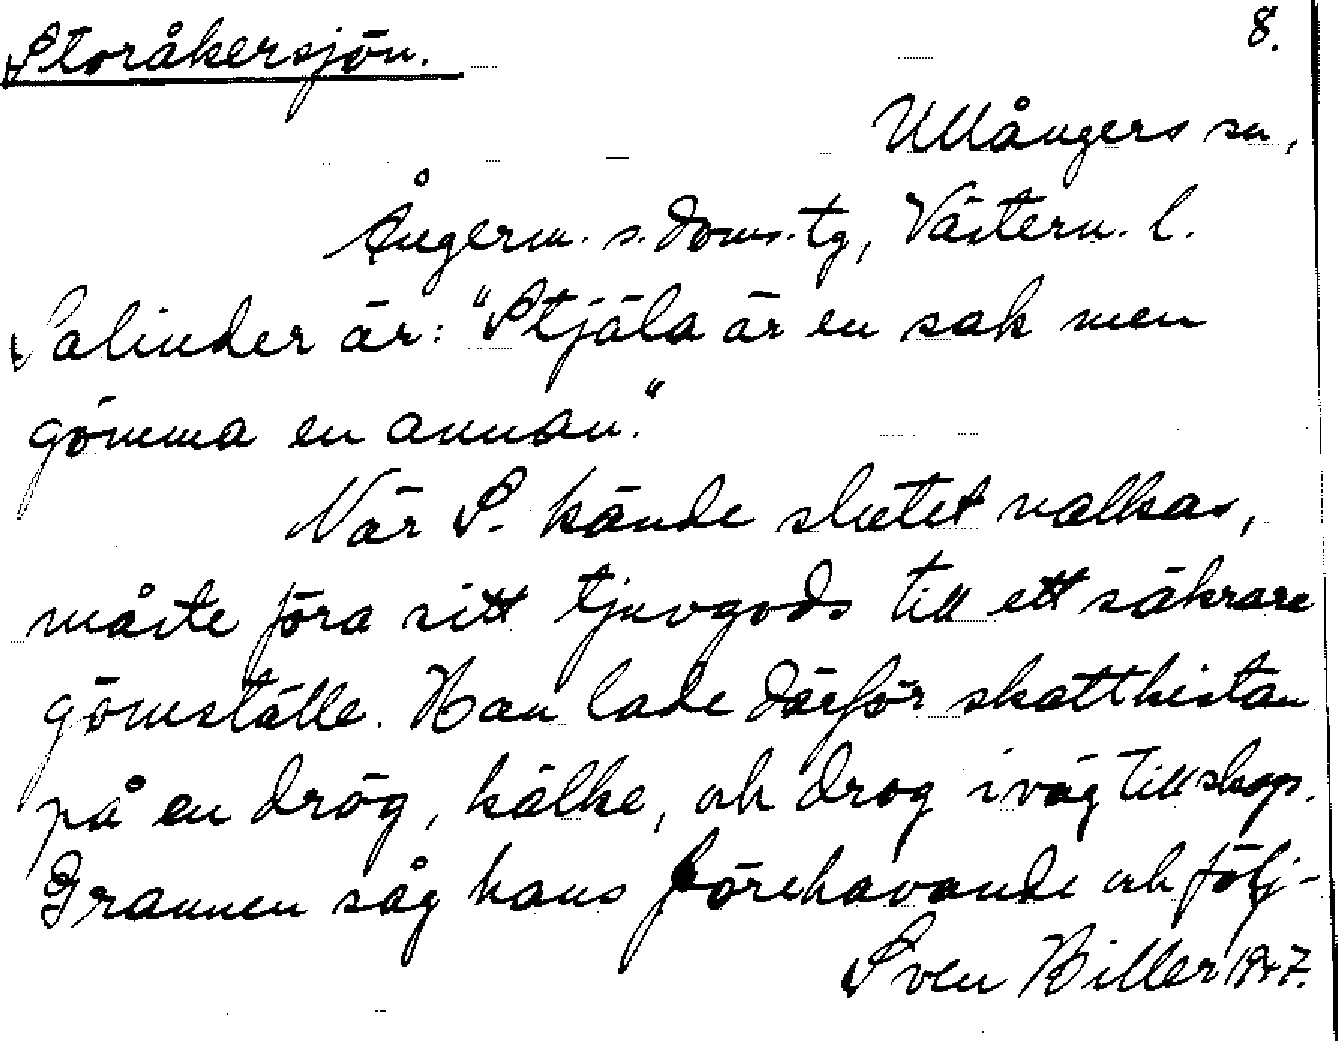 Storåkersjön.
8.
Ullångers sn,
Ångerm. s. doms. tg, Västern. l.
Salinder är: "Stjäla är en sak men
gömma en annan."
När S. kände slutet nalkas,
måste föra sitt tjuvgods till ett säkrare
gömställe. Han lade därför skattkistan
på en drög, kälke, och drog iväg till skogs.
Grannen såg hans förehavande och följ-
Sven Biller 1947.